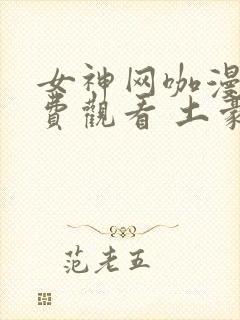 女神网咖漫
費觀看 土豪
范老五